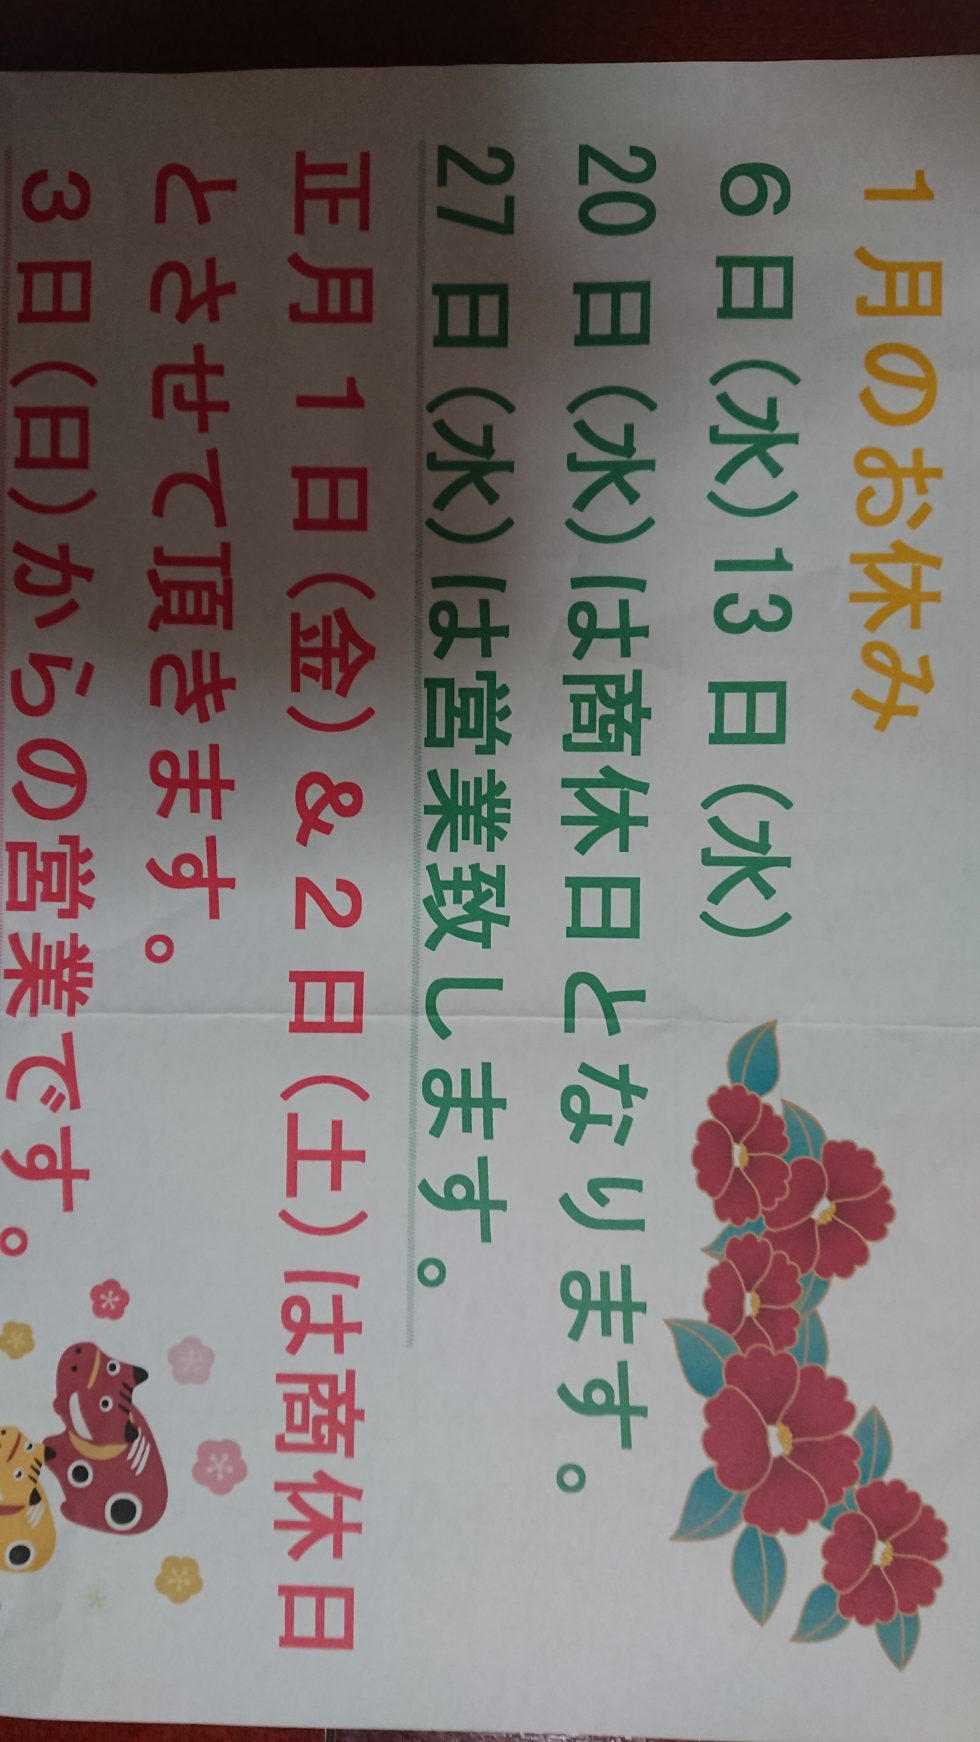 1月のお休み
6日(水)13日(水)
20日(水)は商休日となります。
27日(水)は営業致します。
正月1日(金)&2日(土)は商休日
とさせて頂きます。
3日(日)からの営業です。